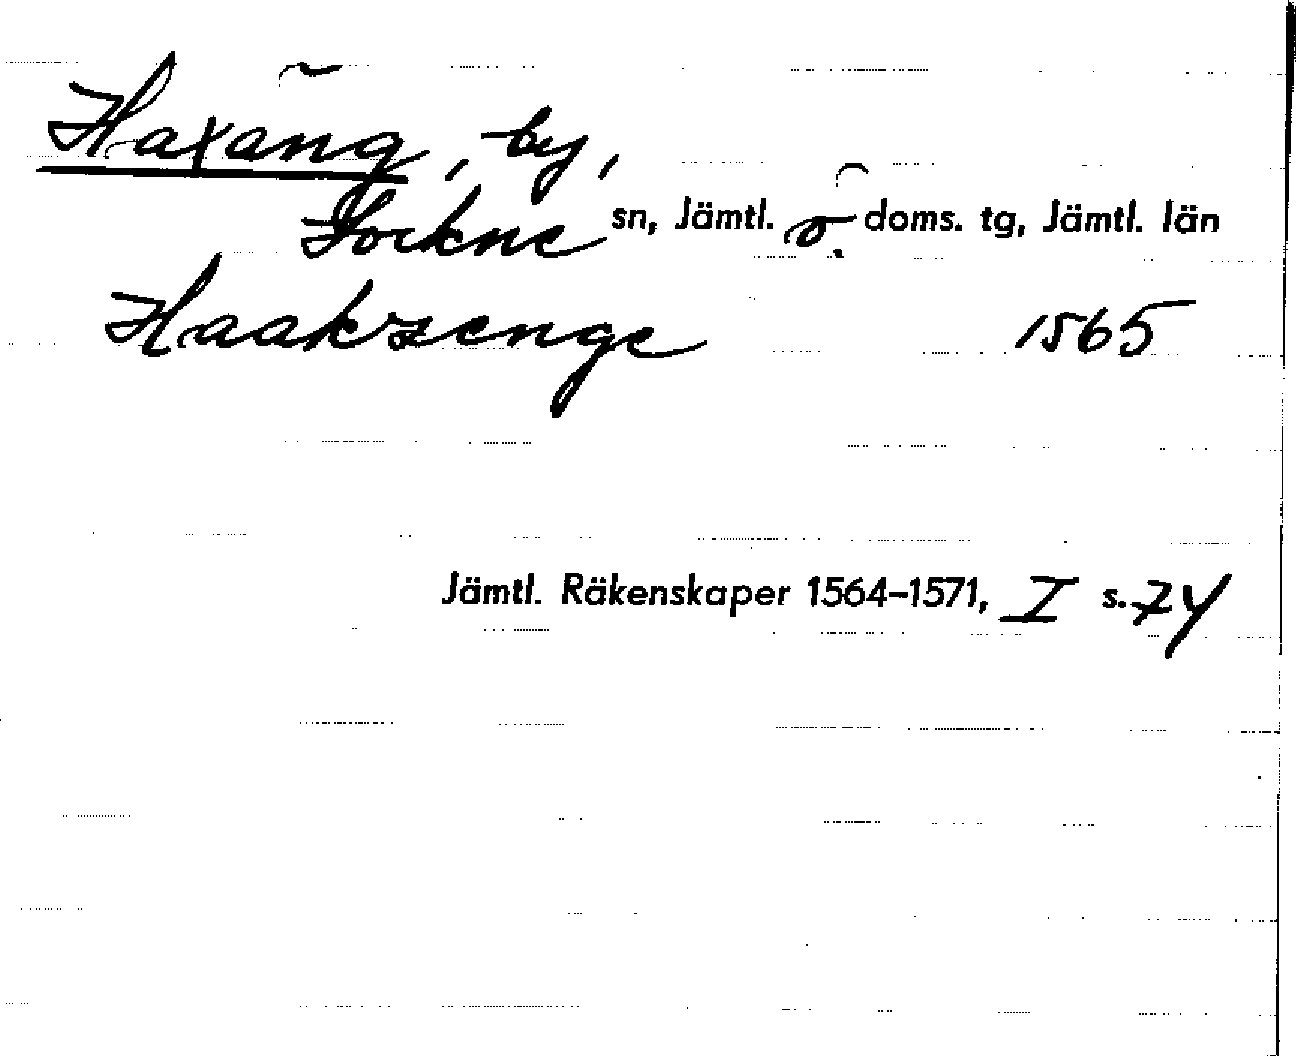 Haxäng, by,
Lockne sn, Jämtl. ö. doms. tg, Jämtl. län
Haakzenge 1565
Jämtl. Räkenskaper 1564–1571, I s. 74